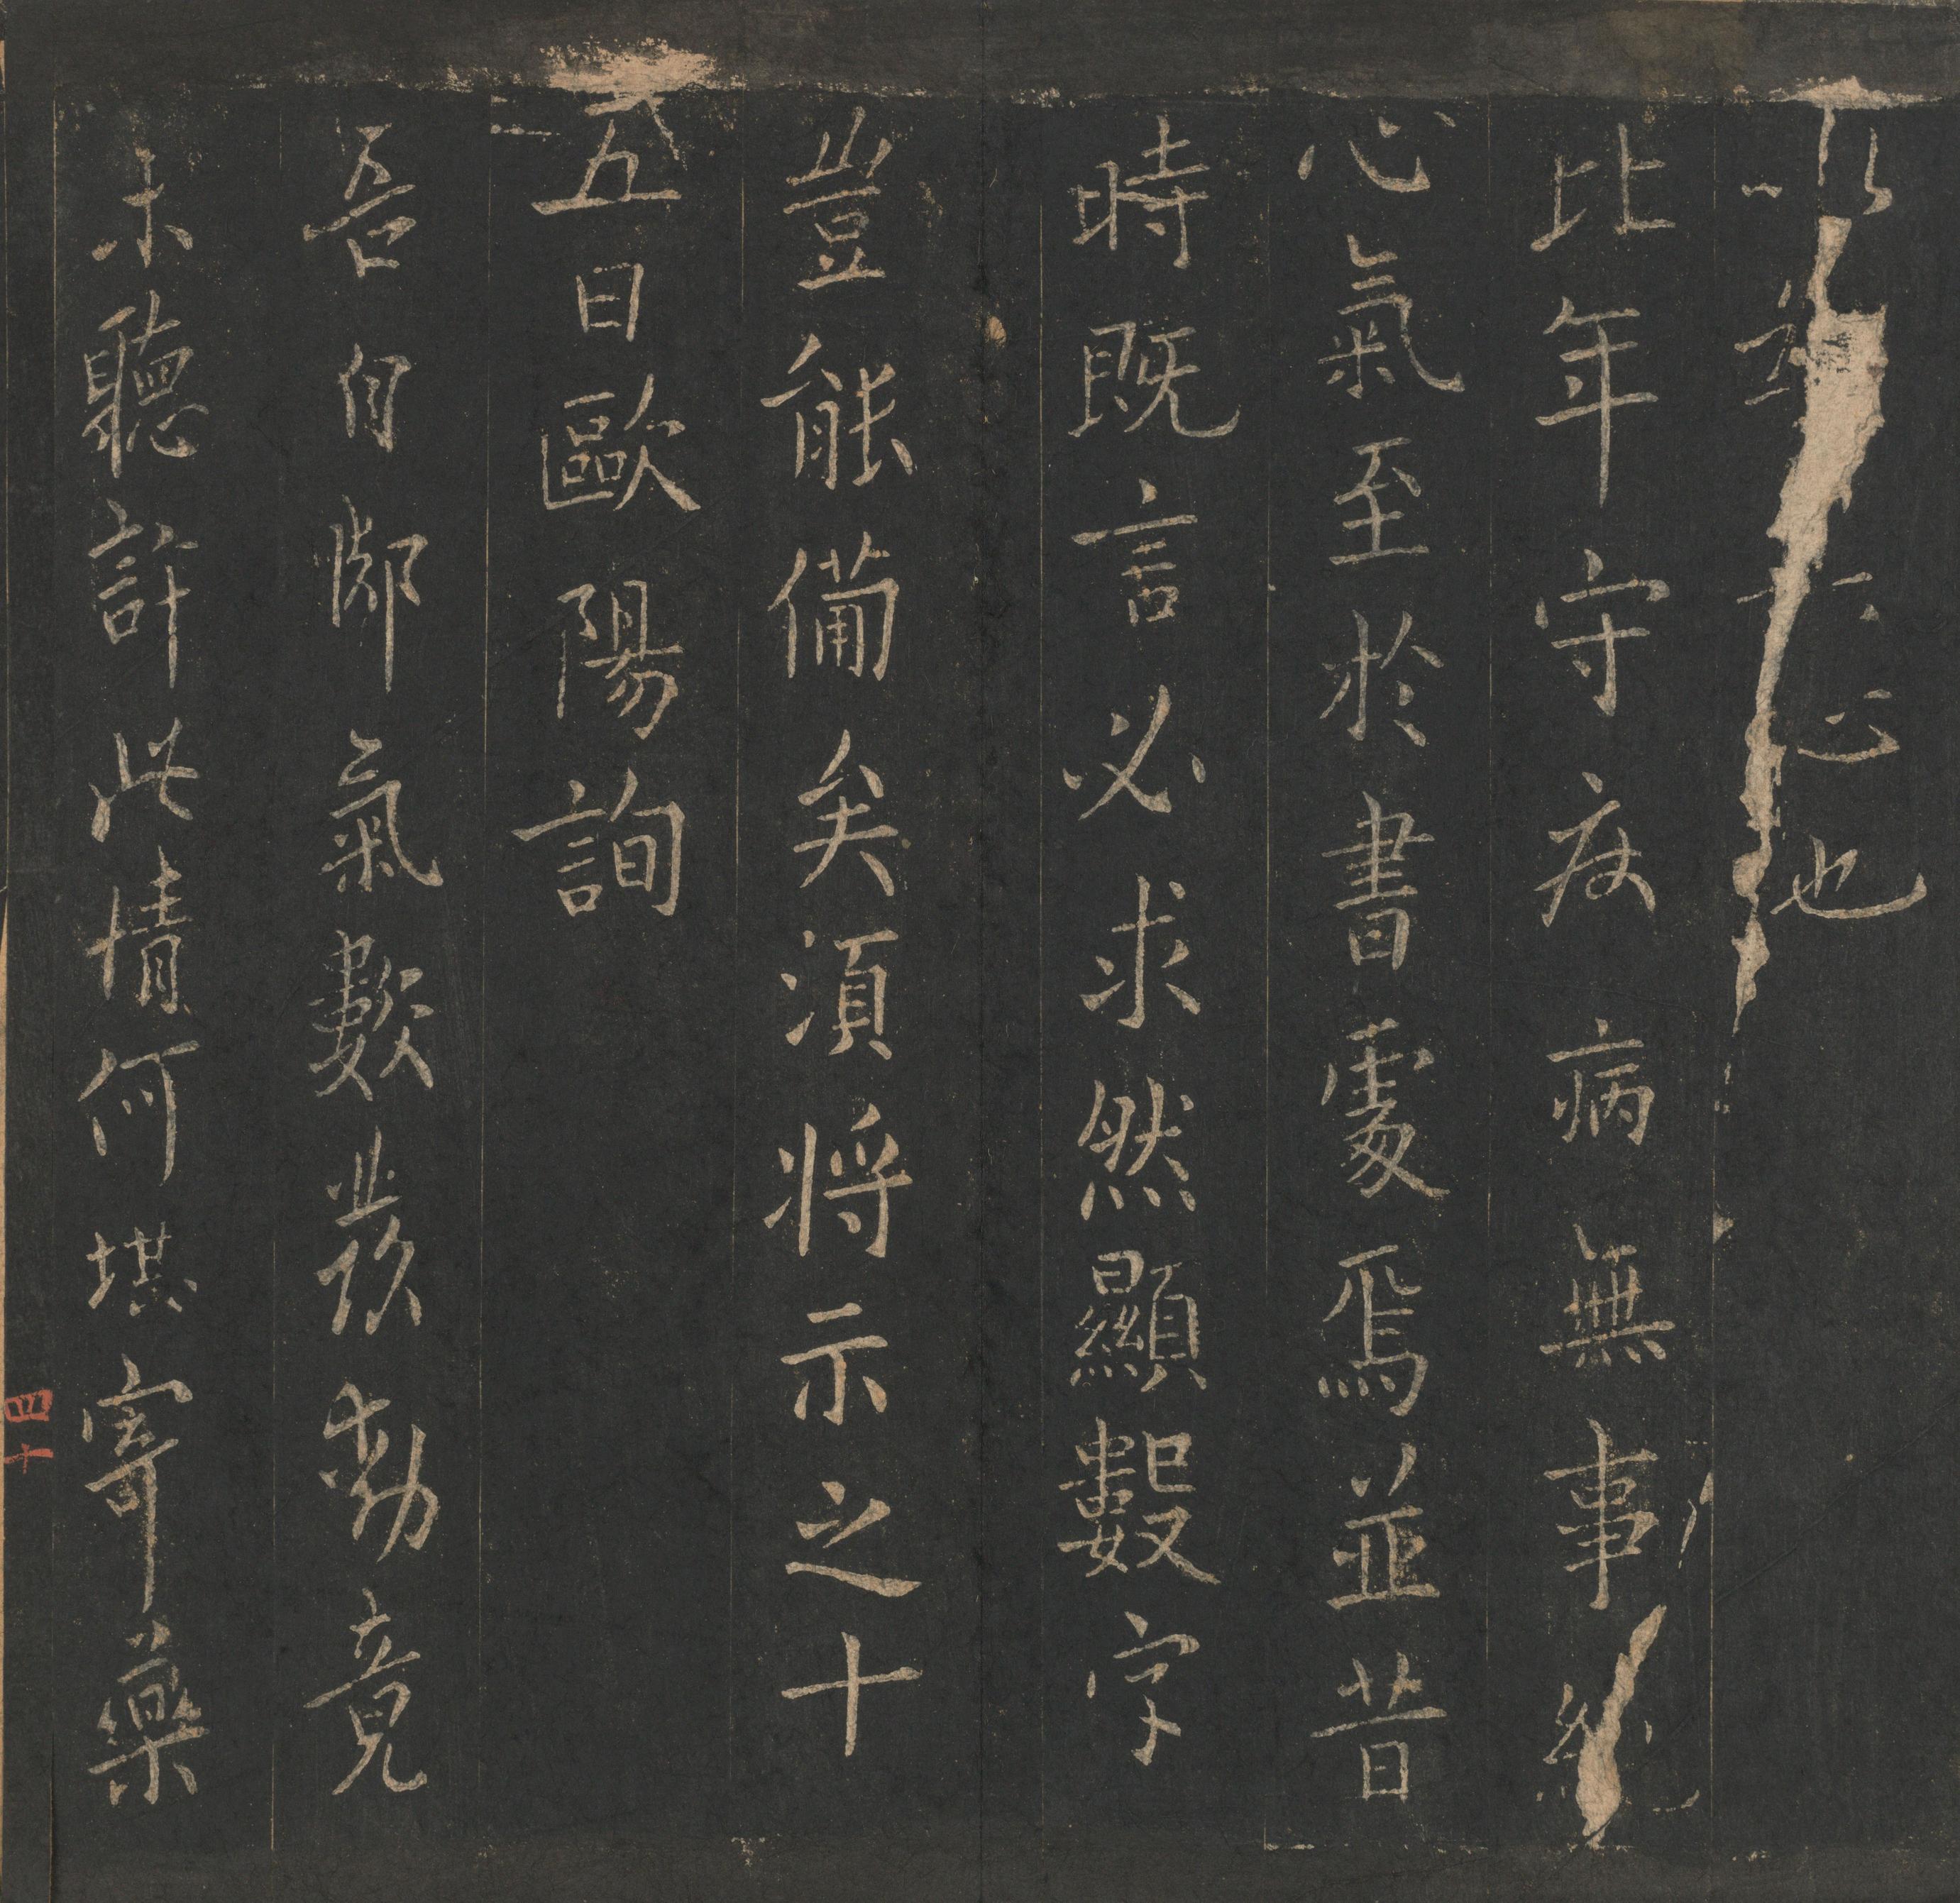 也
比年守疾病無事
心氣至於書處焉並昔
時既言必求然顯數字
豈能備矣須將示之十
五日歐陽詢
吾自腳氣數發動竟
未聽許此情何堪寄藥
四十